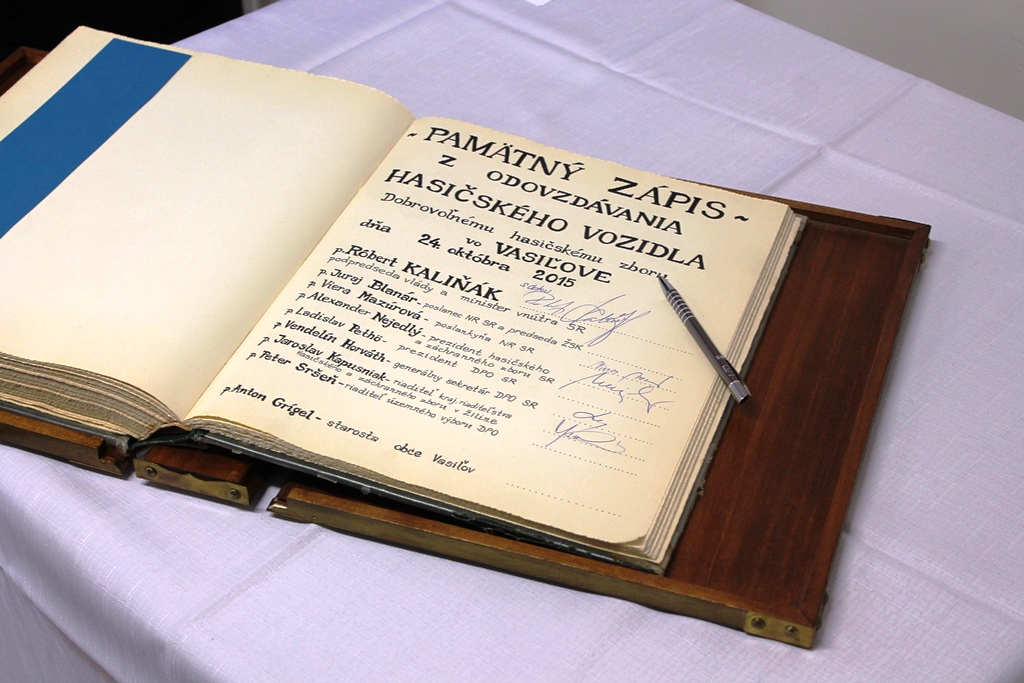 ~ PAMÄTNÝ ZÁPIS ~
Z ODOVZDÁVANIA
HASIČSKÉHO VOZIDLA
Dobrovoľnému hasičskému zboru
vo VASIĽOVE
dňa 24. októbra 2015
p. Róbert KALIŇÁK
podpredseda vlády a minister vnútra SR
p. Juraj Blanár - poslanec NR SR a predseda ŽSK
p. Viera Mazúrová - poslankyňa NR SR
p. Alexander Nejedlý - prezident hasičského
a záchranného zboru SR
p. Ladislav Pethö - prezident DPO SR
p. Vendelín Horváth - generálny sekretár DPO SR
p. Jaroslav Kapusniak - riaditeľ kraj. riaditeľstva
Hasičského a záchranného zboru v Žiline
p. Peter Sršeň - riaditeľ územného výboru DPO
p. Anton Grígel - starosta obce Vasiľov